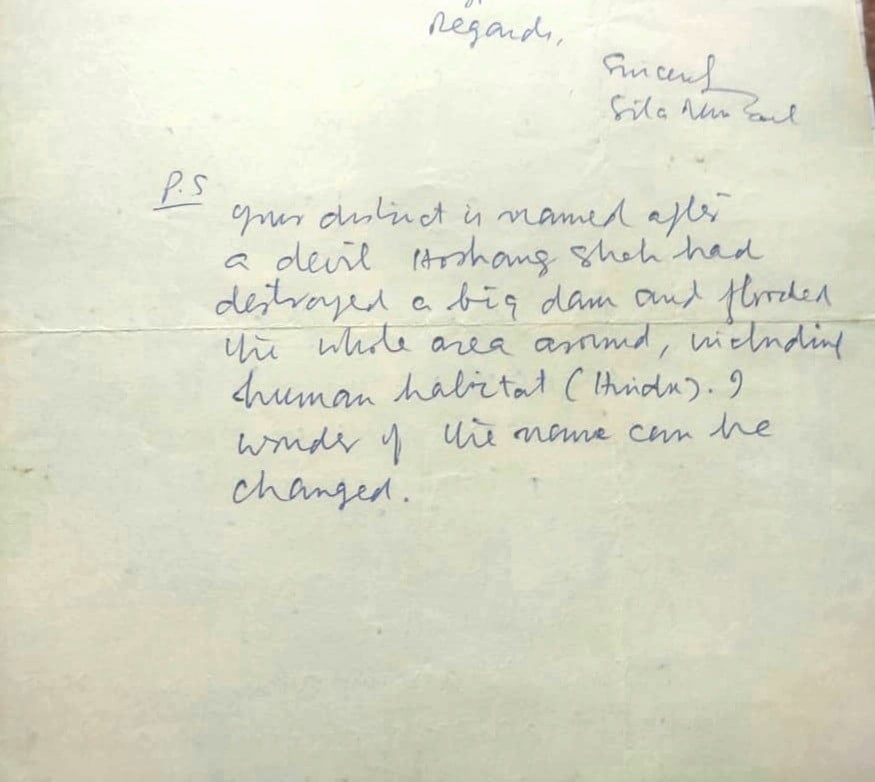 Regards,
Sincerely
Sita Ram Goel
P.S
Your district is named after
a devil Hoshang Shah had
destroyed a big dam and flooded
the whole area around, including
human habitat (Hindu). I
wonder if the name can be
changed.